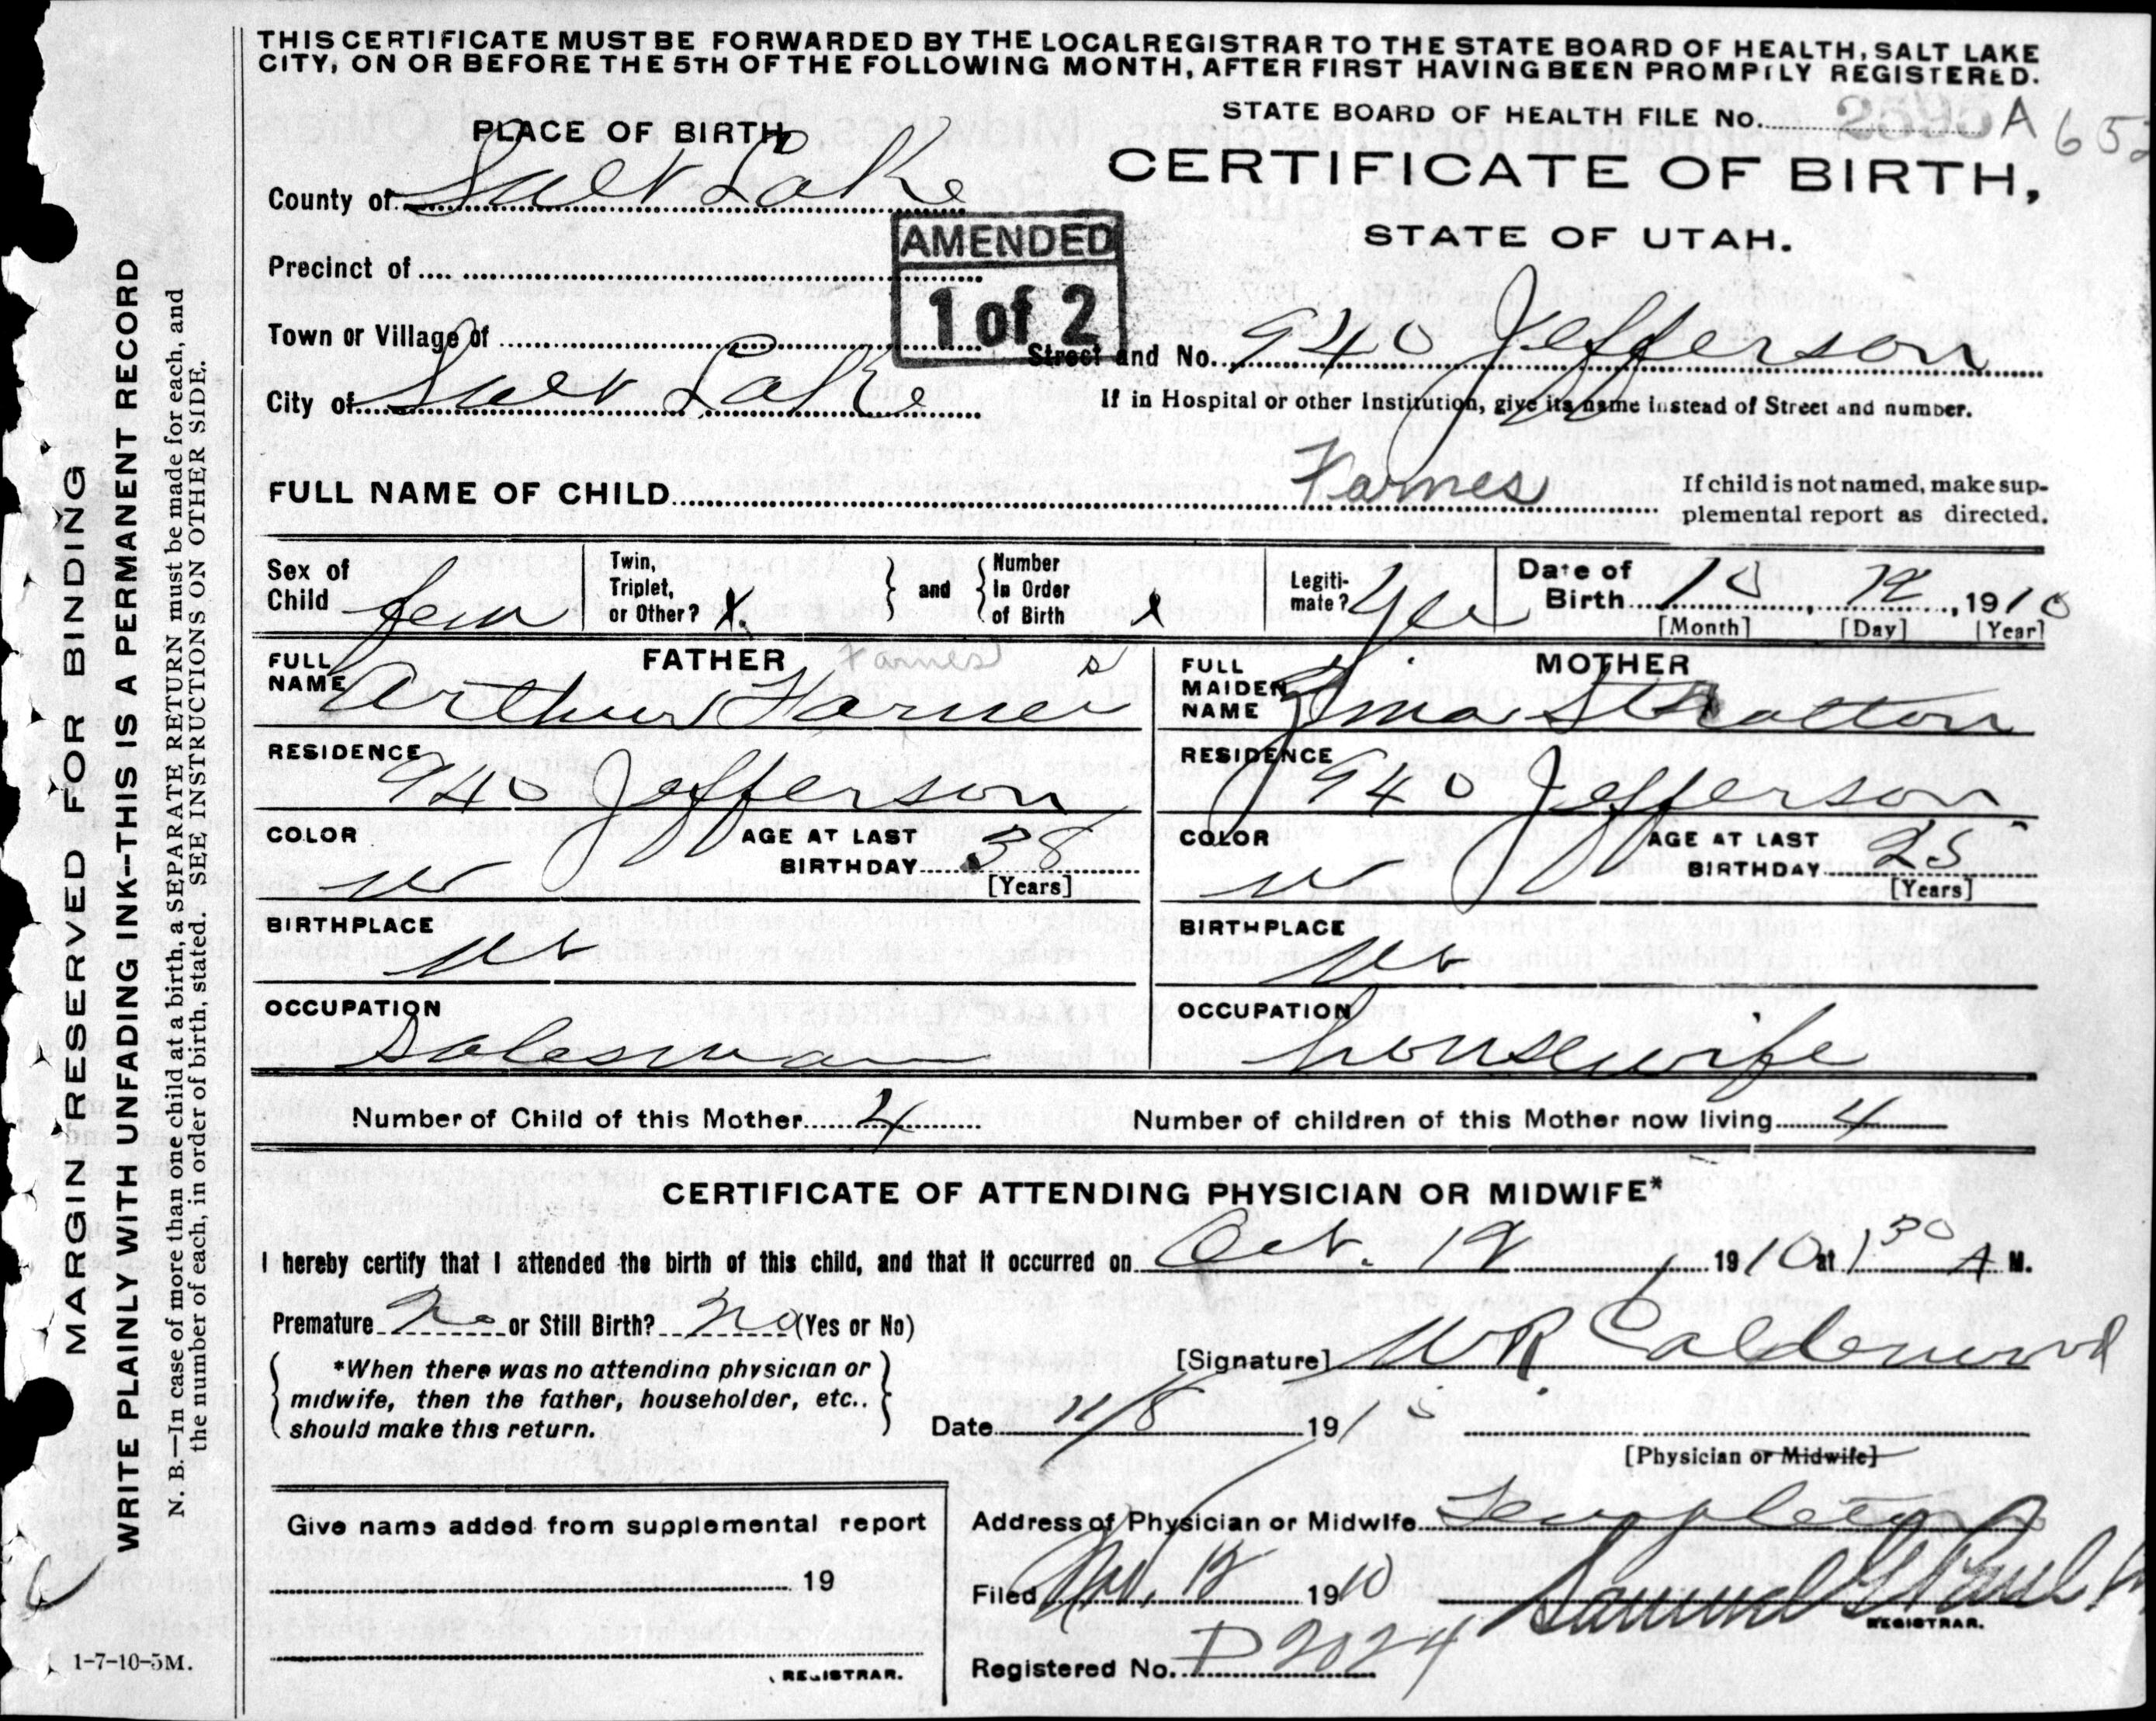 THIS CERTIFICATE MUST BE FORWARDED BY THE LOCAL REGISTRAR TO THE STATE BOARD OF HEALTH, SALT LAKE
CITY, ON OR BEFORE THE 5TH OF THE FOLLOWING MONTH, AFTER FIRST HAVING BEEN PROMPTLY REGISTERED.
STATE BOARD OF HEALTH FILE No. A 652
PLACE OF BIRTH
CERTIFICATE OF BIRTH,
STATE OF UTAH.
County of Salt Lake
AMENDED
1 of 2
Precinct of
Town or Village of
Street and No. 940 Jefferson
City of Salt Lake
If in Hospital or other Institution, give its name instead of Street and number.
FULL NAME OF CHILD Farnes
If child is not named, make sup-
plemental report as directed.
Sex of Child fem
Twin, Triplet, or Other? X.
and
Number In Order of Birth x
Legiti-mate? Yes
Date of Birth 10, 12, 1910
[Month] [Day] [Year]
FATHER Farnes
FULL NAME Arthur Farnes
MOTHER
FULL MAIDEN NAME Stratton
RESIDENCE 940 Jefferson
RESIDENCE 940 Jefferson
COLOR W
AGE AT LAST BIRTHDAY 38 [Years]
COLOR W
AGE AT LAST BIRTHDAY 25 [Years]
BIRTHPLACE Ut
BIRTHPLACE Ut
OCCUPATION Salesman
OCCUPATION housewife
Number of Child of this Mother 4
Number of children of this Mother now living 4
CERTIFICATE OF ATTENDING PHYSICIAN OR MIDWIFE*
I hereby certify that I attended the birth of this child, and that it occurred on Oct. 12, 1910 at 1 30 A M.
Premature No or Still Birth? No (Yes or No)
*When there was no attending physician or
midwife, then the father, householder, etc..
should make this return.
[Signature] W R Calderwood
Date 11/8 1910
[Physician or Midwife]
Give name added from supplemental report
19
REGISTRAR.
Address of Physician or Midwife Templeton
Filed Nov. 12 1910
Samuel G Paul
REGISTRAR.
Registered No. D 2024
MARGIN RESERVED FOR BINDING
WRITE PLAINLY WITH UNFADING INK--THIS IS A PERMANENT RECORD
N. B.—In case of more than one child at a birth, a SEPARATE RETURN must be made for each, and
the number of each, in order of birth, stated. SEE INSTRUCTIONS ON OTHER SIDE.
1-7-10-5M.